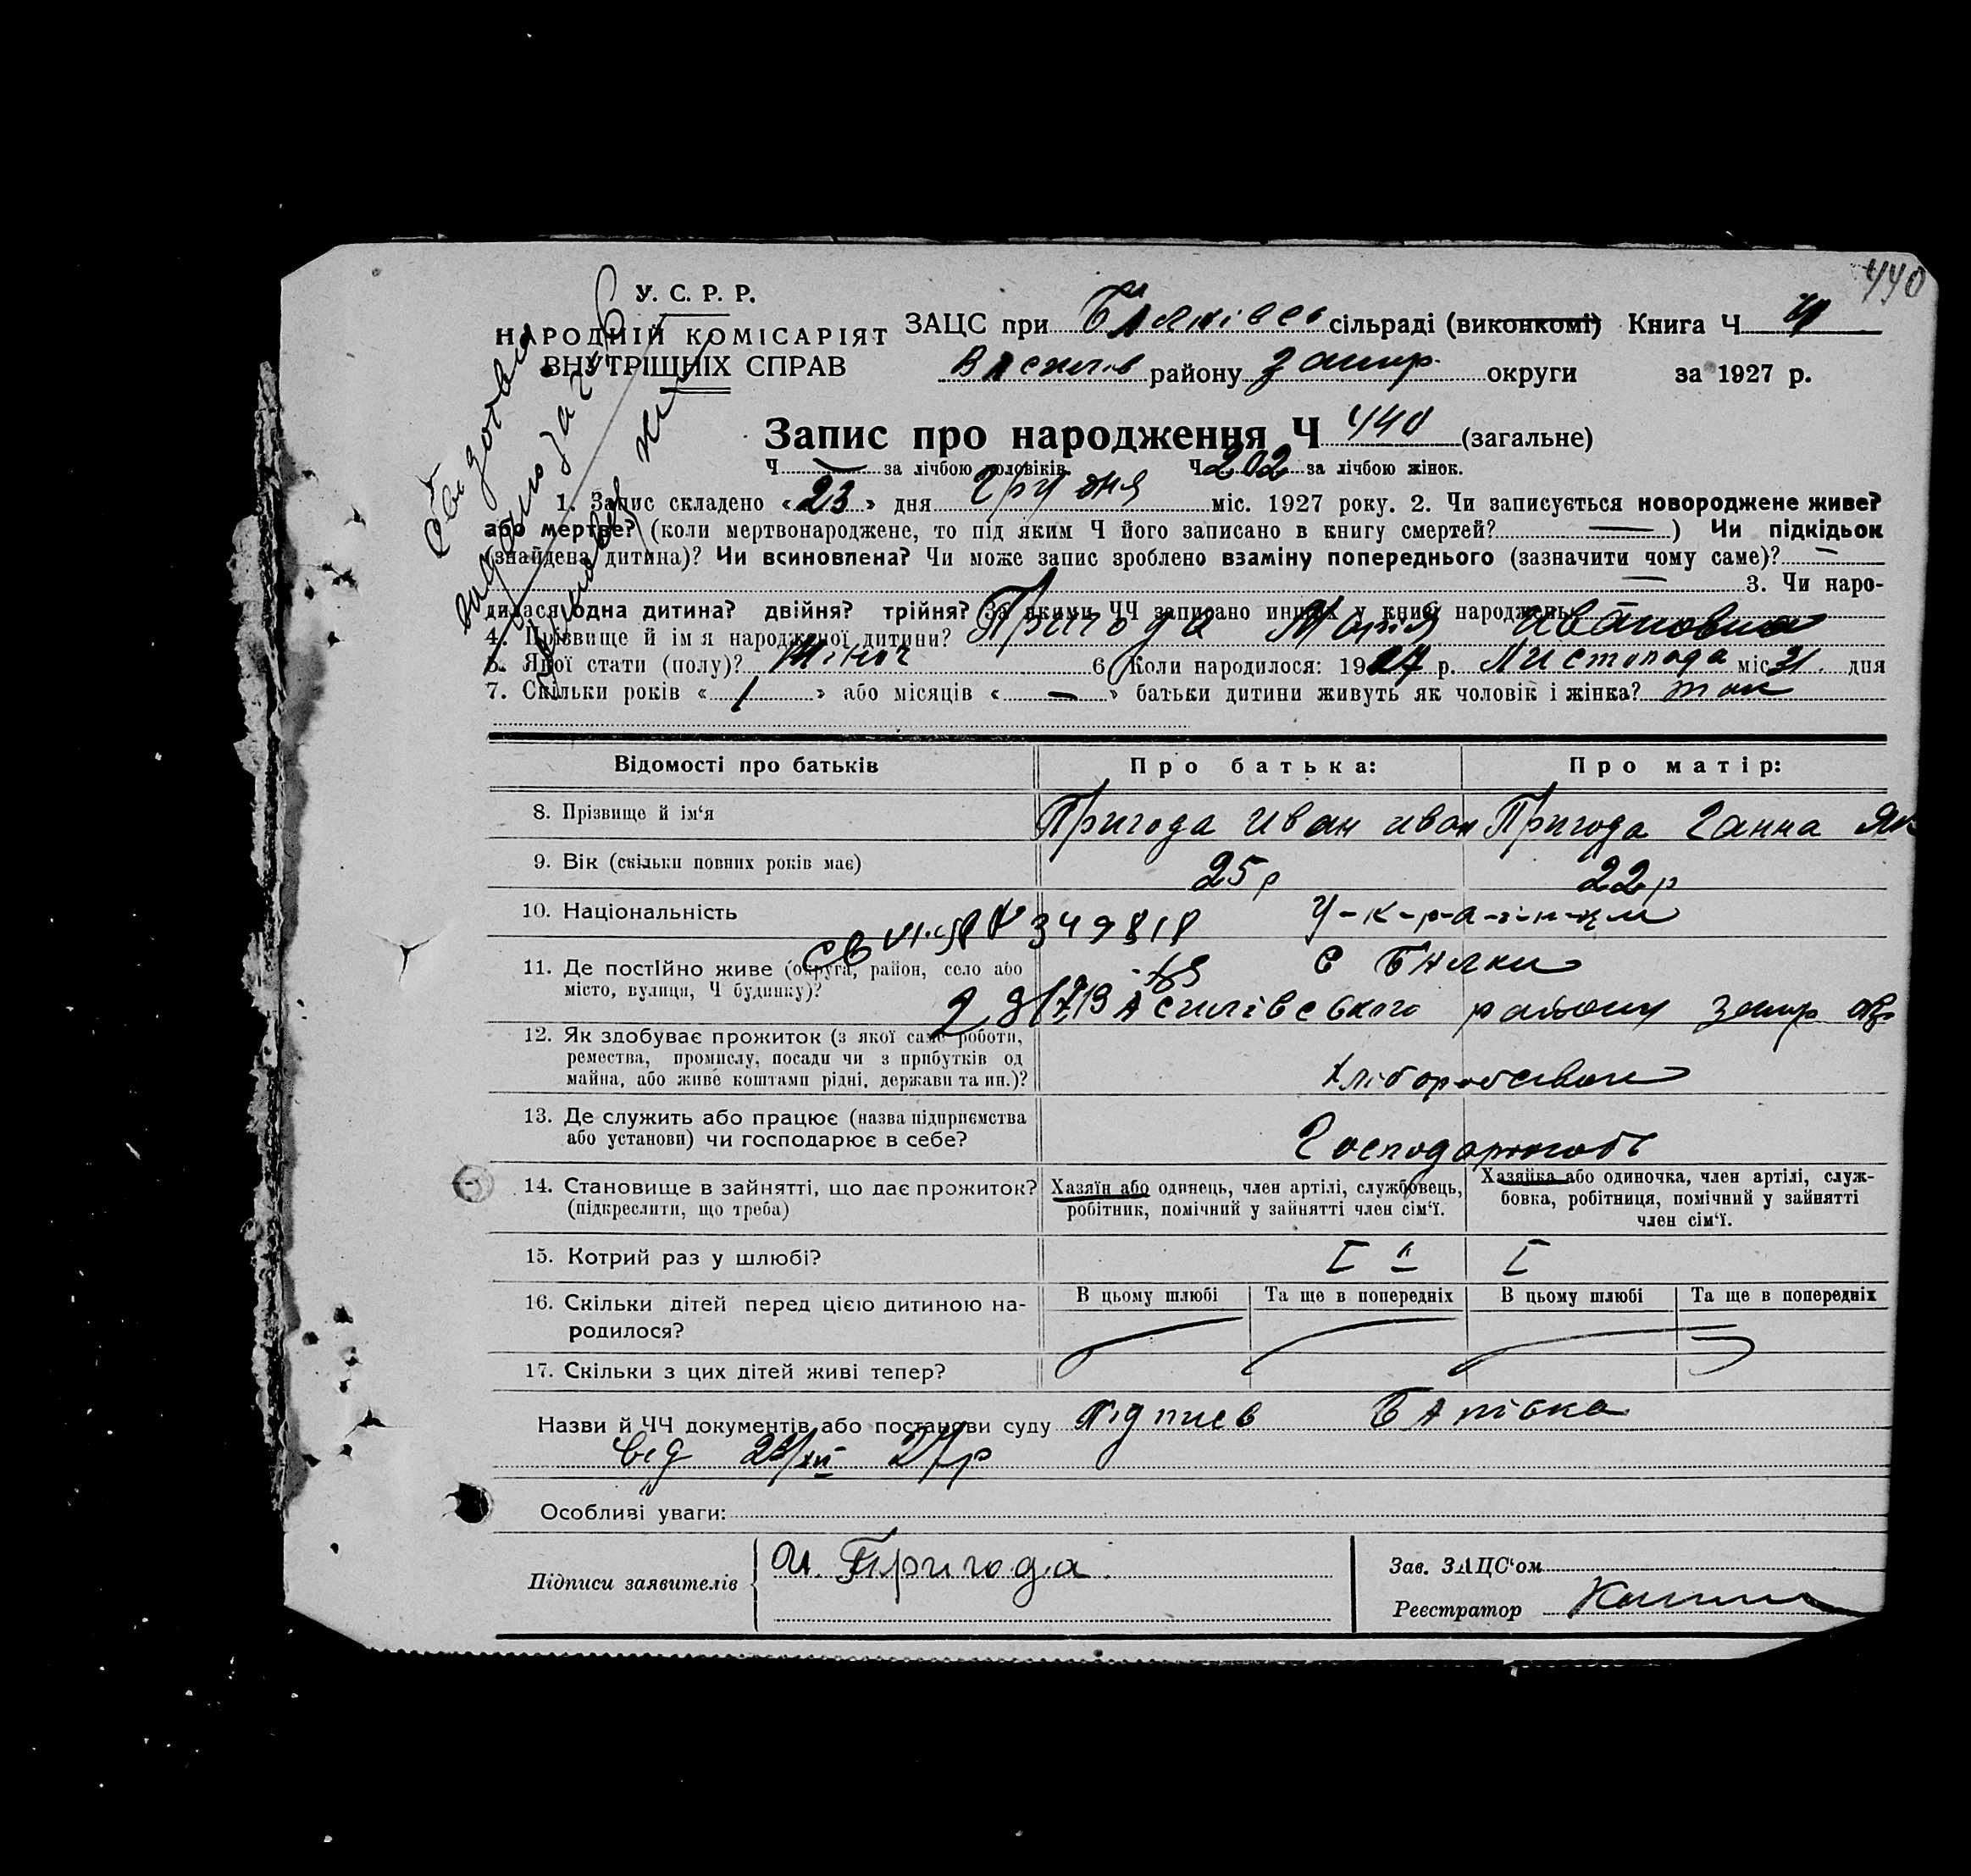 440
У. С. Р. Р.
НАРОДНІЙ КОМІСАРІЯТ
ВНУТРІШНІХ СПРАВ
ЗАЦС при сільраді (виконкомі) Книга Ч
Василів району Запор округи за 1927 р.
Запис про народження Ч 440 (загальне)
Ч за лічбою чоловіків Ч 202 за лічбою жінок.
1. Запис складено «23» дня Грудня міс. 1927 року. 2. Чи записується новороджене живе?
або мертве? (коли мертвонароджене, то під яким Ч його записано в книгу смертей? —) Чи підкідьок
(знайдена дитина)? Чи всиновлена? Чи може запис зроблено взаміну попереднього (зазначити чому саме)? —
— 3. Чи наро-
дилася одна дитина? двійня? трійня? За якими ЧЧ записано инших у книзі народжень
4. Прізвище й ім'я народженої дитини? Пригода Марія Ивановна
5. Якої стати (полу)? Жіноч 6. Коли народилося: 1927 р. Листопада міс 31 дня
7. Скільки років «1» або місяців «—» батьки дитини живуть як чоловік і жінка? так
Відомості про батьків Про батька: Про матір:
8. Прізвище й ім'я Пригода Иван Иван Пригода Ганна Як
9. Вік (скільки повних років має) 25 р 22 р
10. Національність У-к-р-а-ї-н-ци
349818
11. Де постІйно живе (округа, район, село або С Балки
місто, вулиця, Ч будинку)? Василівського району Запор окр
12. Як здобуває прожиток (з якої саме роботи,
ремества, промислу, посади чи з прибутків од
майна, або живе коштами рідні, держави та ин.)? хліборобством
13. Де служить або працює (назва підприємства
або установи) чи господарює в себе? Господарюють
14. Становище в зайнятті, що дає прожиток? (підкреслити, що треба)
Хазяїн або одинець, член артілі, службовець, робітник, помічний у зайнятті член сім'ї.
Хазяйка або одиночка, член артілі, служ-
бовка, робітниця, помічний у зайнятті
член сім'ї.
15. Котрий раз у шлюбі? I I
16. Скільки дітей перед цією дитиною на-
родилося? В цьому шлюбі Та ще в попередніх В цьому шлюбі Та ще в попередніх
17. Скільки з цих дітей живі тепер?
Назви й ЧЧ документів або постанови суду
від 23/XII 27 р
Особливі уваги:
Підписи заявителів И. Пригода.
Зав. ЗАЦС'ом
Реєстратор